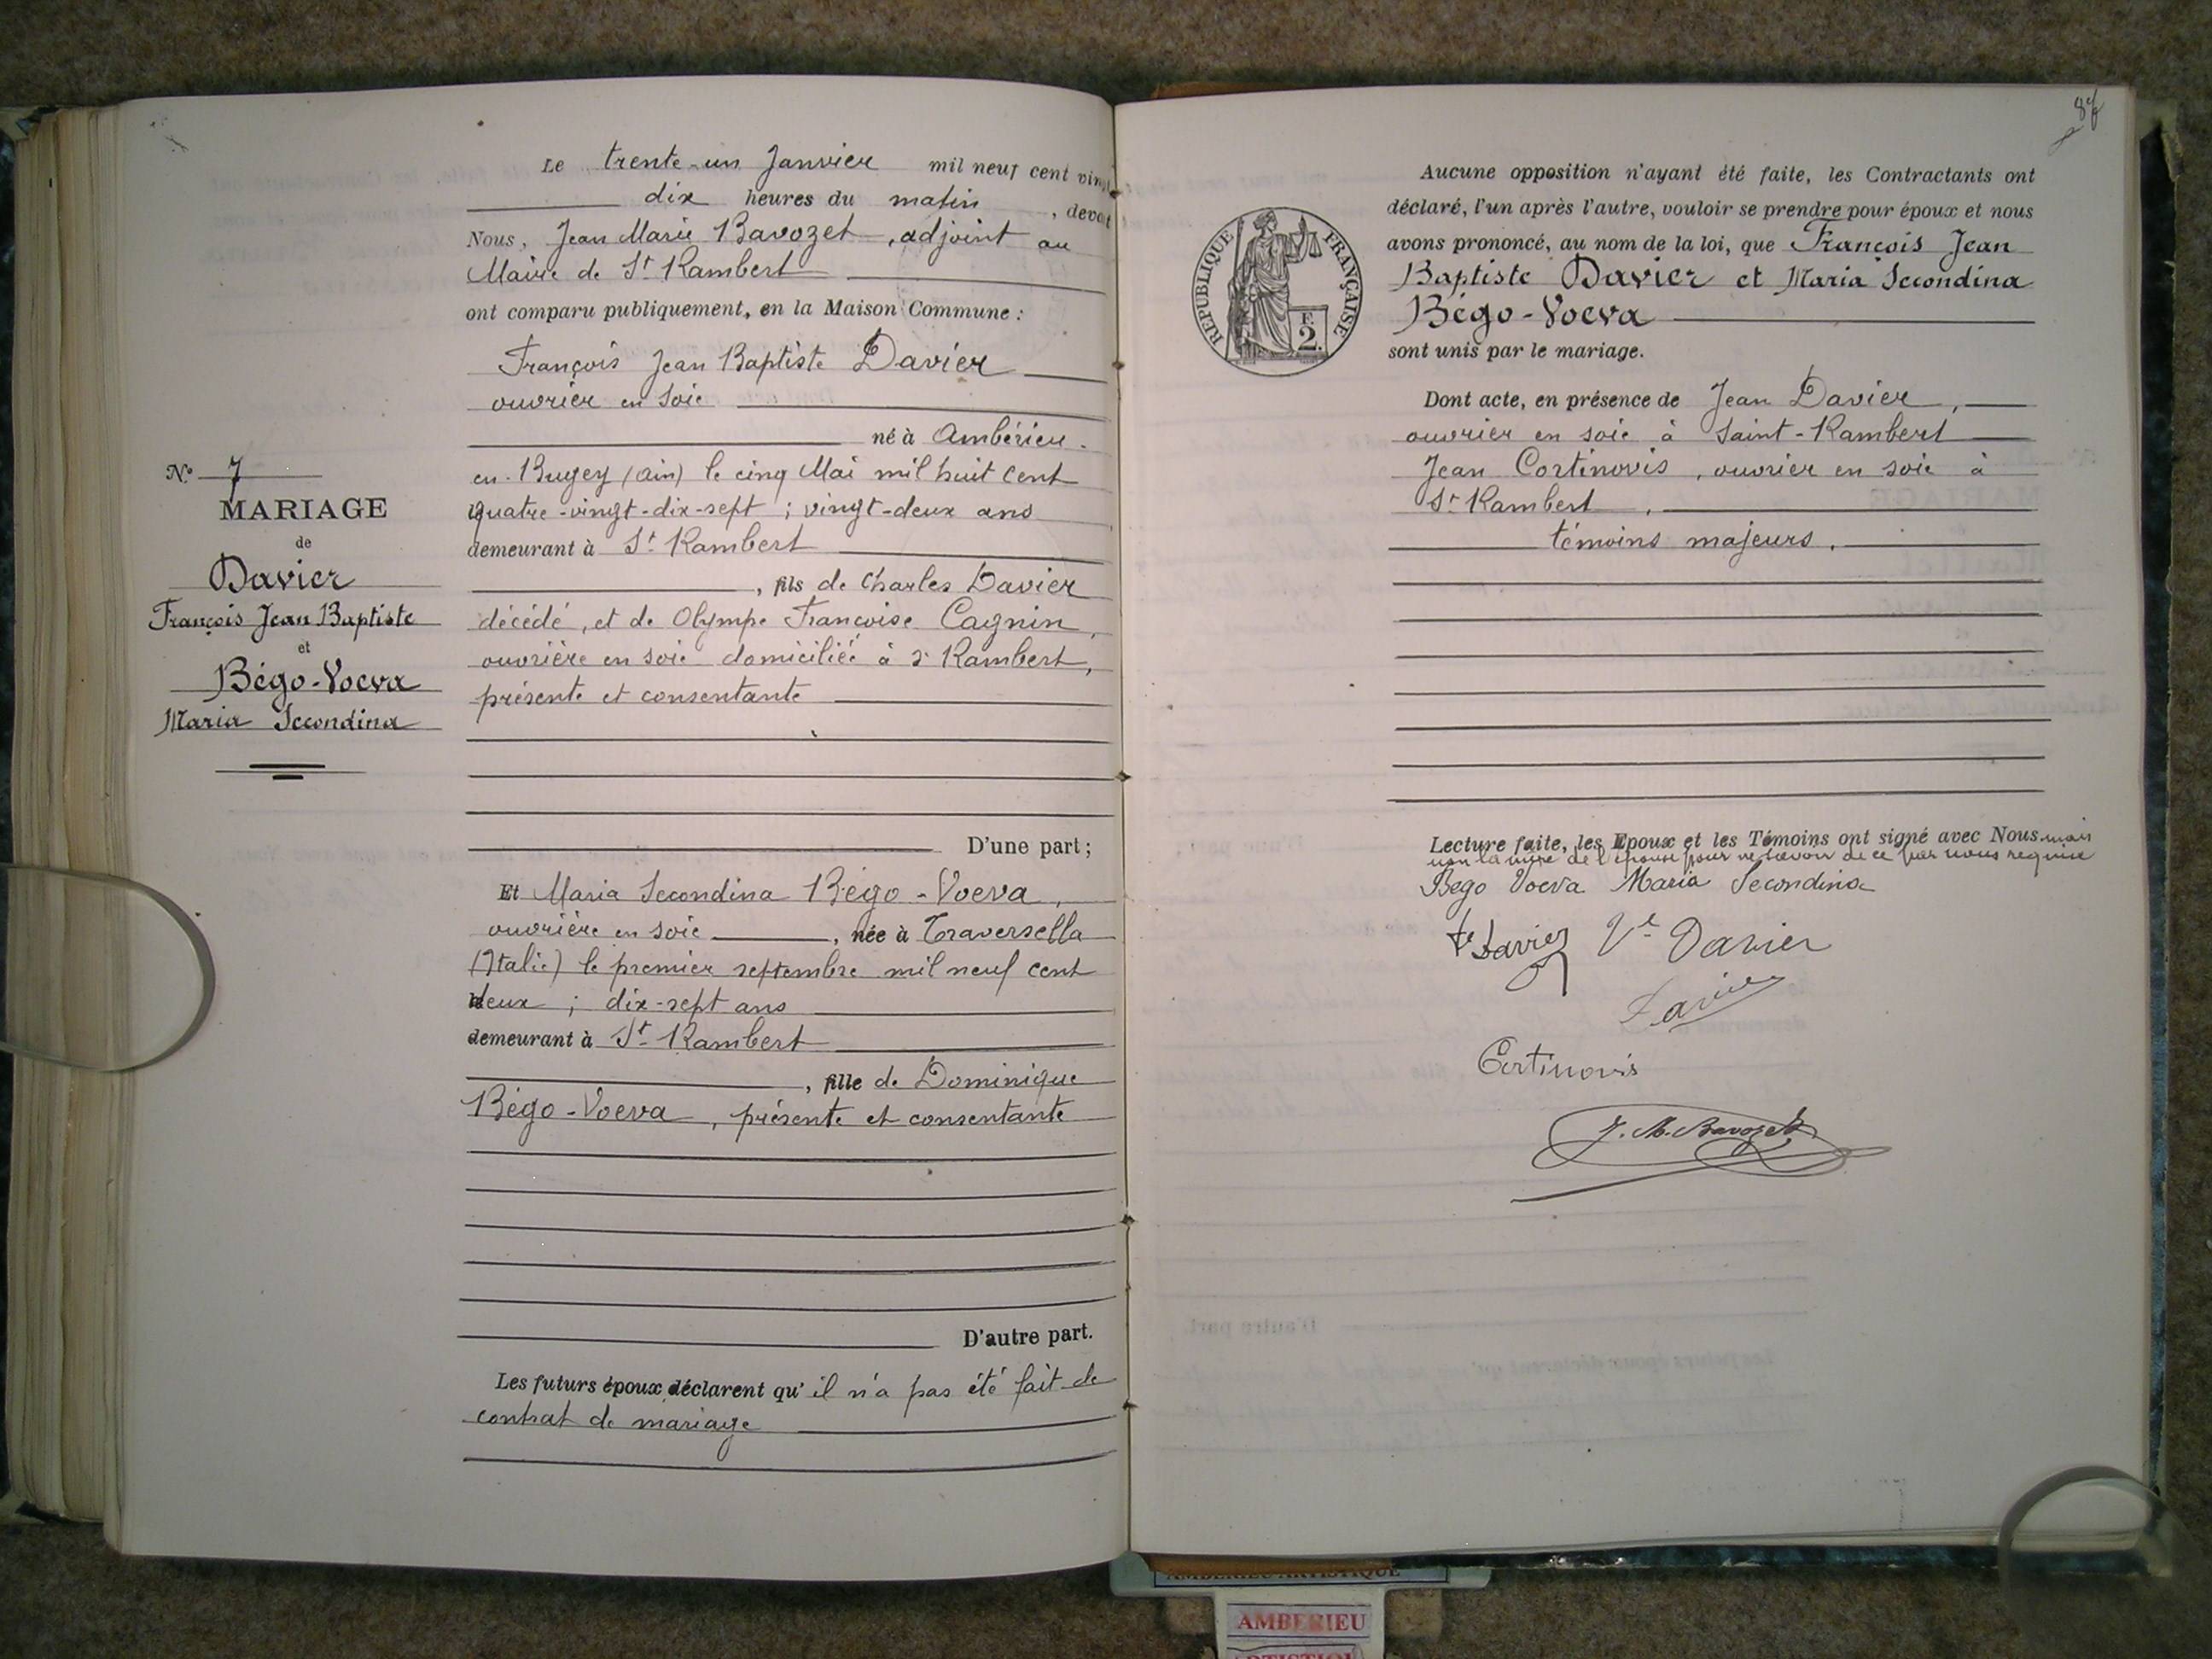 Le trente-un Janvier mil neuf cent vingt
dix heures du matin, devat
Nous, Jean Marie Bavozet, adjoint au
Maire de St Rambert
ont comparu publiquement, en la Maison Commune :
François Jean Baptiste Davier
ouvrier en soie
né à Ambérieu-
en-Bugey (Ain) le cinq Mai mil huit cent
quatre-vingt-dix-sept ; vingt-deux ans
demeurant à St Rambert
, fils de Charles Davier
décédé, et de Olympe Françoise Cagnin,
ouvrière en soie domiciliée à St Rambert,
présente et consentante
D'une part ;
Et Maria Secondina Bégo-Voeva,
ouvrière en soie, née à Traversella
(Italie) le premier septembre mil neuf cent
deux ; dix-sept ans
demeurant à St Rambert
, fille de Dominique
Bégo-Voeva, présente et consentante
D'autre part.
Les futurs époux déclarent qu'il n'a pas été fait de
contrat de mariage
No 7
MARIAGE
de
Davier
François Jean Baptiste
et
Bégo-Voeva
Maria Secondina
Aucune opposition n'ayant été faite, les Contractants ont
déclaré, l'un après l'autre, vouloir se prendre pour époux et nous
avons prononcé, au nom de la loi, que François Jean
Baptiste Davier et Maria Secondina
Bégo-Voeva
sont unis par le mariage.
Dont acte, en présence de Jean Davier,
ouvrier en soie à Saint-Rambert
Jean Cortinovis, ouvrier en soie à
St Rambert,
témoins majeurs.
Lecture faite, les Epoux et les Témoins ont signé avec Nous mais
non la mère de l'épouse pour ne savoir de ce par nous requise
Bego Voeva Maria Secondina
Davier Ve Davier
Davier
Cortinovis
J. M. Bavozet
REPUBLIQUE FRANÇAISE
F.
2.
AMBERIEU ARTISTIQUE
AMBERIEU